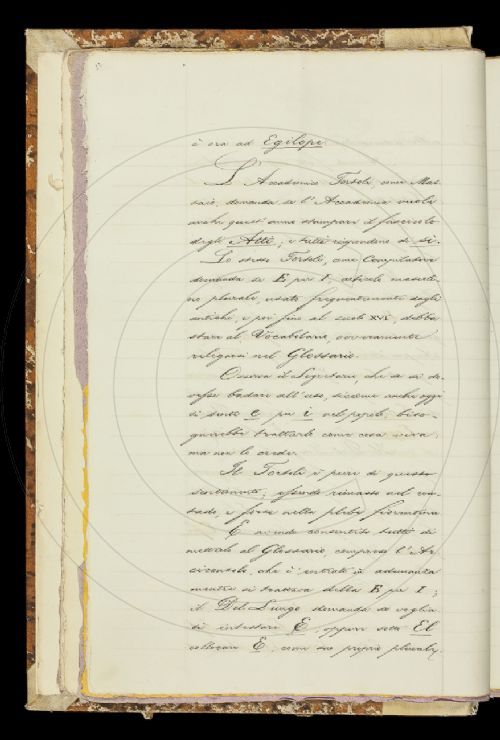 è ora ad Egilope.
L'Accademico Tortoli, come Mas-
saio, domanda se l'Accademia vuole
anche quest'anno stampare il fascicolo
degli Atti; e tutti rispondono di sì.
Lo stesso Tortoli, come Compilatore
domanda se E per I, articolo mascoli-
no plurale, usato frequentemente dagli
antichi, e poi fino al secolo XVI, debba
stare al Vocabolario, ovveramente
relegarsi nel Glossario.
Osserva il Segretario, che se si do-
vesse badare all'uso, siccome anche oggi
si sente e per i nel popolo, biso-
gnerebbe trattarlo come cosa viva;
ma non lo crede.
Il Tortoli è pure di questo
sentimento, essendo rimasto nel con-
tado, e forse nella plebe fiorentina.
E avendo consentito tutti di
metterlo al Glossario, compreso l'Ar-
ciconsolo che è entrato in adunanza
mentre si trattava della E per I;
il Del Lungo domanda se voglia-
si intestare E, oppure sotto El
collocare E, come suo proprio plurale,